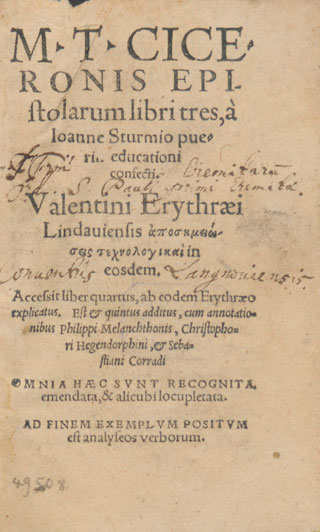 M· T· CICE-
RONIS EPI
stolarum libri tres, à
Ioanne Sturmio pue-
rili educationi
confecti.
Eremitarū
S. Pauli primi Eremitæ.
Valentini Erythræi
Lindauiensis ἀποσημειώ-
σεις τεχνολογικαὶ in
eosdem.
Conventus Langnoviensis.
Accessit liber quartus, ab eodem Erythræo
explicatus. Est & quintus additus, cum annotatio-
nibus Philippi Melanchthonis, Christopho-
ri Hegendorphini, & Seba-
stiani Corradi
OMNIA HÆC SVNT RECOGNITA,
emendata, & alicubi locupletata.
AD FINEM EXEMPLVM POSITVM
est analyseos verborum.
49508.